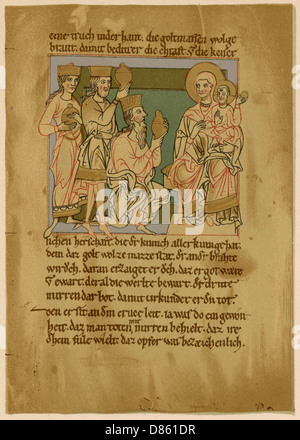 eine truch under hant. die goltmassen wolge
brant. damit bediuter die chraft. die keiser
lichen herschaft. die dr kunich aller kunige hat.
dem daz golt wol ze mazze stat. dr andr brahte
wiroch. daran erzaiget er dch. daz er got ware
Gewart. der al die werlte bewart. dr drite
mirren dar bot. damit urkundet er den tot.
den er sit an dem cruce leit. ia was do ein gewon
heit. daz man toten mit mirren behielt. daz ire
dhein fule wielt. daz opfer was bezaichenlich.
alamy
D861DR